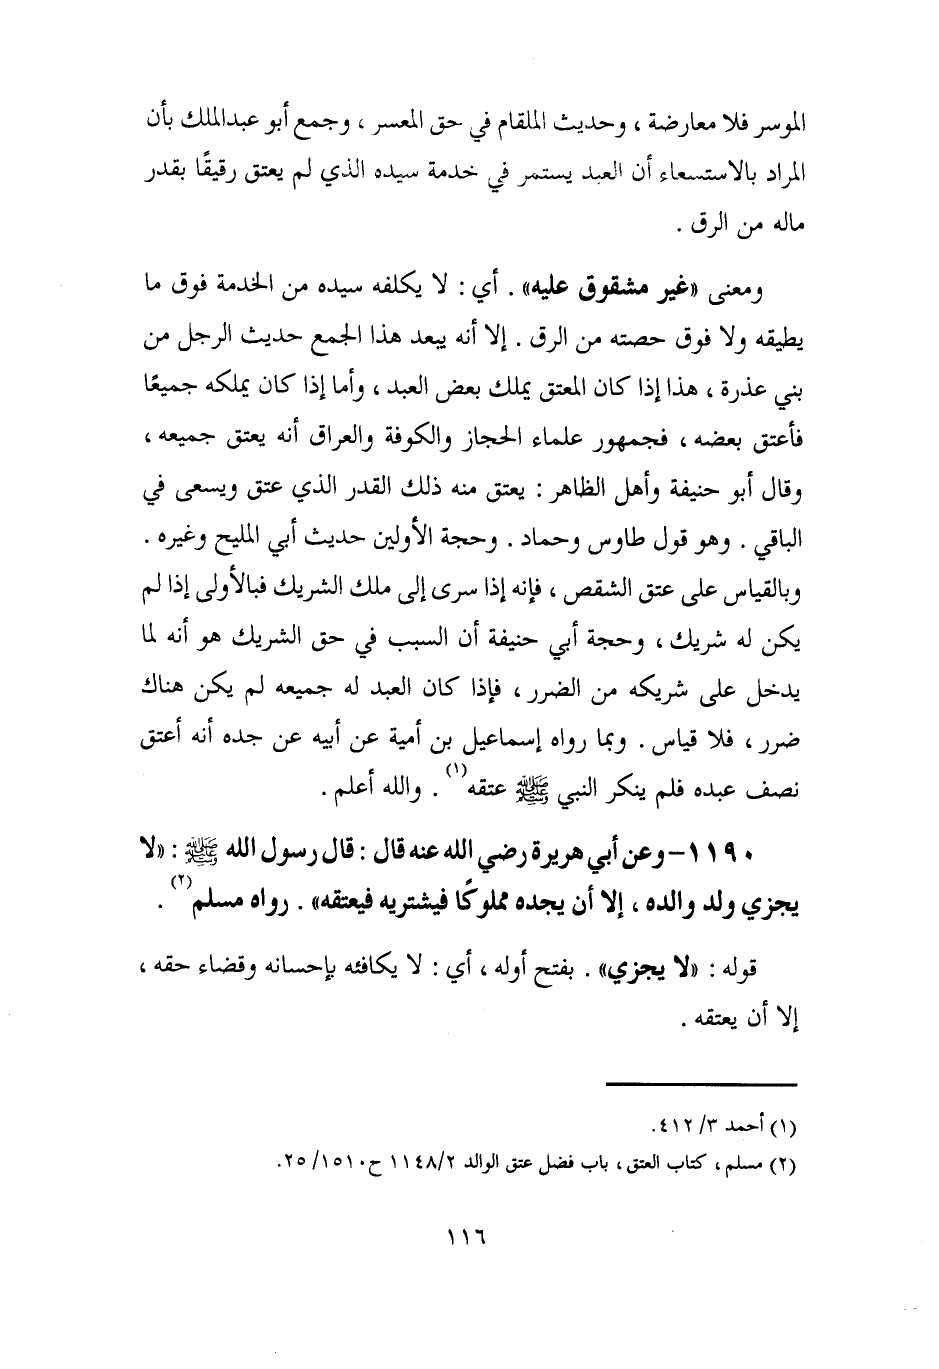 الموسر فلا معارضة ، وحديث الملقام في حق المعسر ، وجمع أبو عبدالملك بأن
المراد بالاستسعاء أن العبد يستمر في خدمة سيده الذي لم يعتق رقيقًا بقدر
ماله من الرق .
ومعنى «غير مشقوق عليه» . أي : لا يكلفه سيده من الخدمة فوق ما
يطيقه ولا فوق حصته من الرق . إلا أنه يبعد هذا الجمع حديث الرجل من
بني عذرة ، هذا إذا كان المعتق يملك بعض العبد ، وأما إذا كان يملكه جميعًا
فأعتق بعضه ، فجمهور علماء الحجاز والكوفة والعراق أنه يعتق جميعه ،
وقال أبو حنيفة وأهل الظاهر : يعتق منه ذلك القدر الذي عتق ويسعى في
الباقي . وهو قول طاوس وحماد . وحجة الأولين حديث أبي المليح وغيره .
وبالقياس على عتق الشقص ، فإنه إذا سرى إلى ملك الشريك فبالأولى إذا لم
يكن له شريك ، وحجة أبي حنيفة أن السبب في حق الشريك هو أنه لما
يدخل على شريكه من الضرر ، فإذا كان العبد له جميعه لم يكن هناك
ضرر ، فلا قياس . وبما رواه إسماعيل بن أمية عن أبيه عن جده أنه أعتق
نصف عبده فلم ينكر النبي ﷺ عتقه(١) . والله أعلم .
١١٩٠- وعن أبي هريرة رضي الله عنه قال : قال رسول الله ﷺ : «لا
يجزي ولد والده ، إلا أن يجده مملوكًا فيشتريه فيعتقه» . رواه مسلم(٢) .
قوله : «لا يجزي» . بفتح أوله ، أي : لا يكافئه بإحسانه وقضاء حقه ،
إلا أن يعتقه .
(١) أحمد ٣/ ٤١٢.
(٢) مسلم ، كتاب العتق ، باب فضل عتق الوالد ٢/ ١١٤٨ ح١٥١٠/ ٢٥.
١١٦